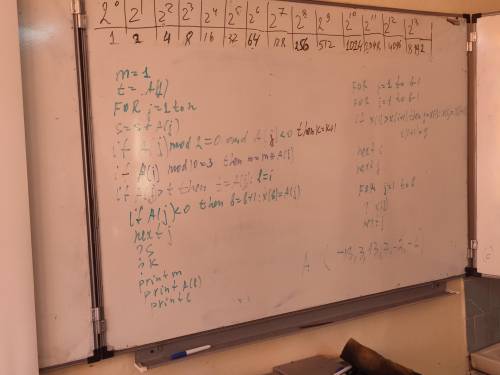 2⁰ 2¹ 2² 2³ 2⁴ 2⁵ 2⁶ 2⁷ 2⁸ 2⁹ 2¹⁰ 2¹¹ 2¹² 2¹³
1 2 4 8 16 32 64 128 256 512 1024 2048 4096 8192
m=1
t=A(1)
FOR j=1 to n
S=S+A(j)
if A(j) mod 2=0 and A(j)<0 then k=k+1
if A(j) mod 10=3 then m=m*A(j)
if A(j)>t then t=A(j): l=i
if A(j)<0 then b=b+1: x(b)=A(j)
next j
? S
? K
print m
print A(l)
print l
FOR j=1 to b-1
FOR i=1 to b-1
next i
next j
FOR j=1 to b
? x(j)
next j
A ( -13, 3, 13, 2, -2,